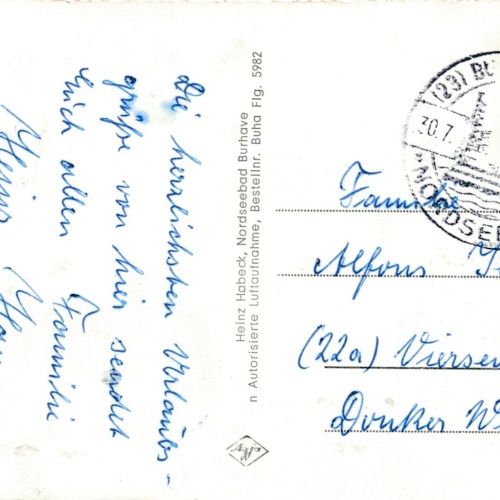 Die herrlichsten Urlaubs-
grüße von hier sendet
Euch allen Familie
Heinz
Heinz Habeck, Nordseebad Burhave
n Autorisierte Luftaufnahme, Bestellnr. Buha Flg. 5982
(23) BU
30.7.
"NORDSEE
Familie
Alfons
(22a) Viersen
Donker W